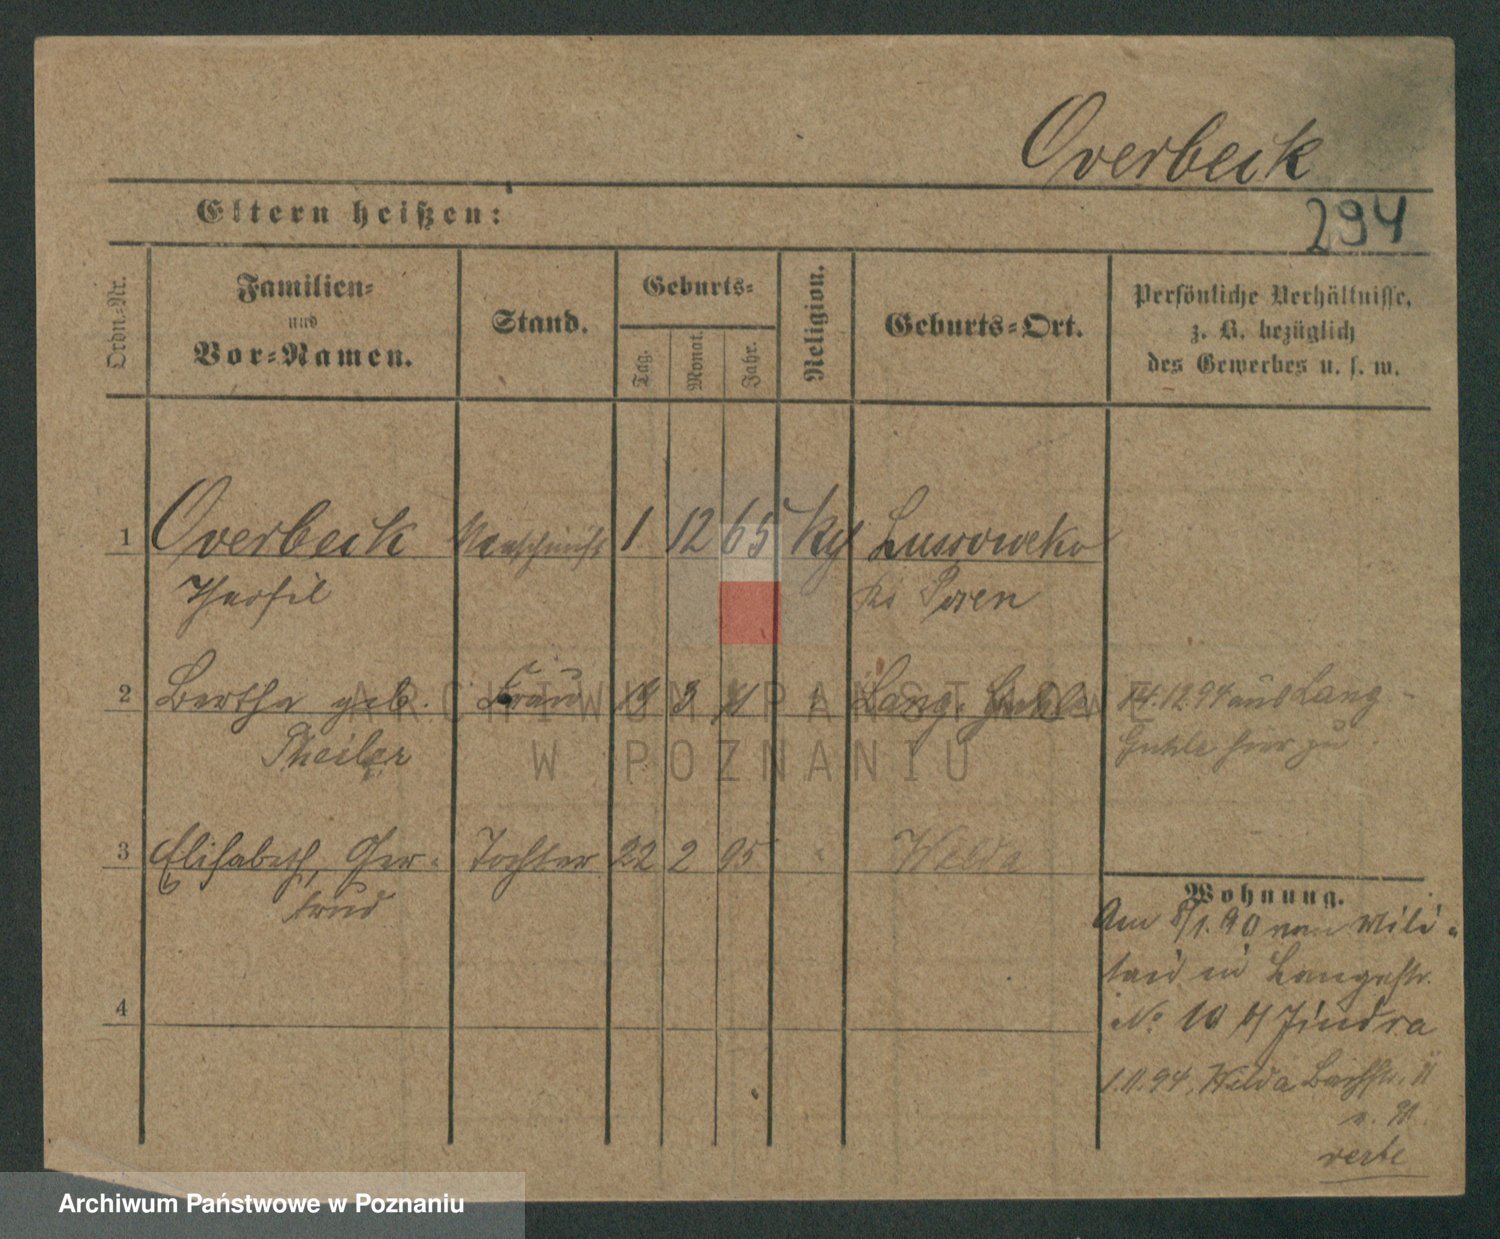 Overbeck
Eltern heißen:
294
Ordn.-Nr.
Familien-
und
Vor-Namen.
Stand.
Geburts-
Tag.
Monat.
Jahr.
Religion.
Geburts-Ort.
Persönliche Verhältnisse,
z. B. bezüglich
des Gewerbes u. s. w.
1 Overbeck 1 12 65 Lussoweko
Posen
2 Bertha geb. Frau 3 Lang.
14.12.94 aus Lang-
Theiler
hier zu
3 Elisabeth, Ger- Tochter 22 2 95 Wilda
trud
Wohnung.
Am 8/1.90 vom Mili-
tair in Langestr.
No 10 b/ Jindra
1.11.94. Wilda Bachstr.
4
ARCHIWUM PAŃSTWOWE
W POZNANIU
Archiwum Państwowe w Poznaniu